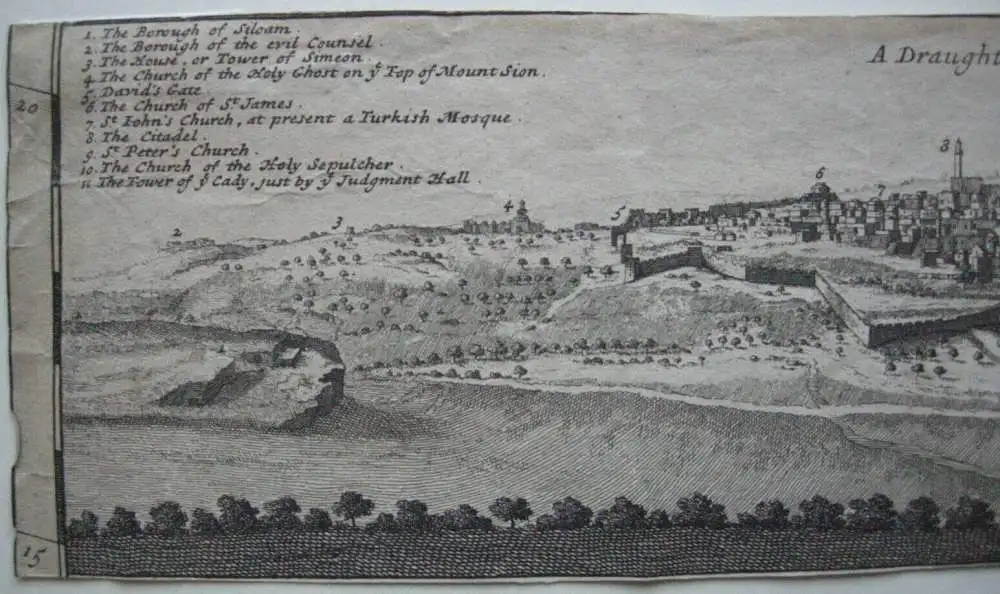 1. The Borough of Siloam.
2. The Borough of the evil Counsel.
3. The House, or Tower of Simeon.
4. The Church of the Holy Ghost on yͤ Top of Mount Sion.
5. David's Gate.
6. The Church of Sᵗ James.
7. Sᵗ Iohn's Church, at present a Turkish Mosque.
8. The Citadel.
9. Sᵗ Peter's Church.
10. The Church of the Holy Sepulcher.
11. The Tower of yͤ Lady, just by yͤ Judgment Hall.
A Draught
20
2
3
4
5
6
7
8
15